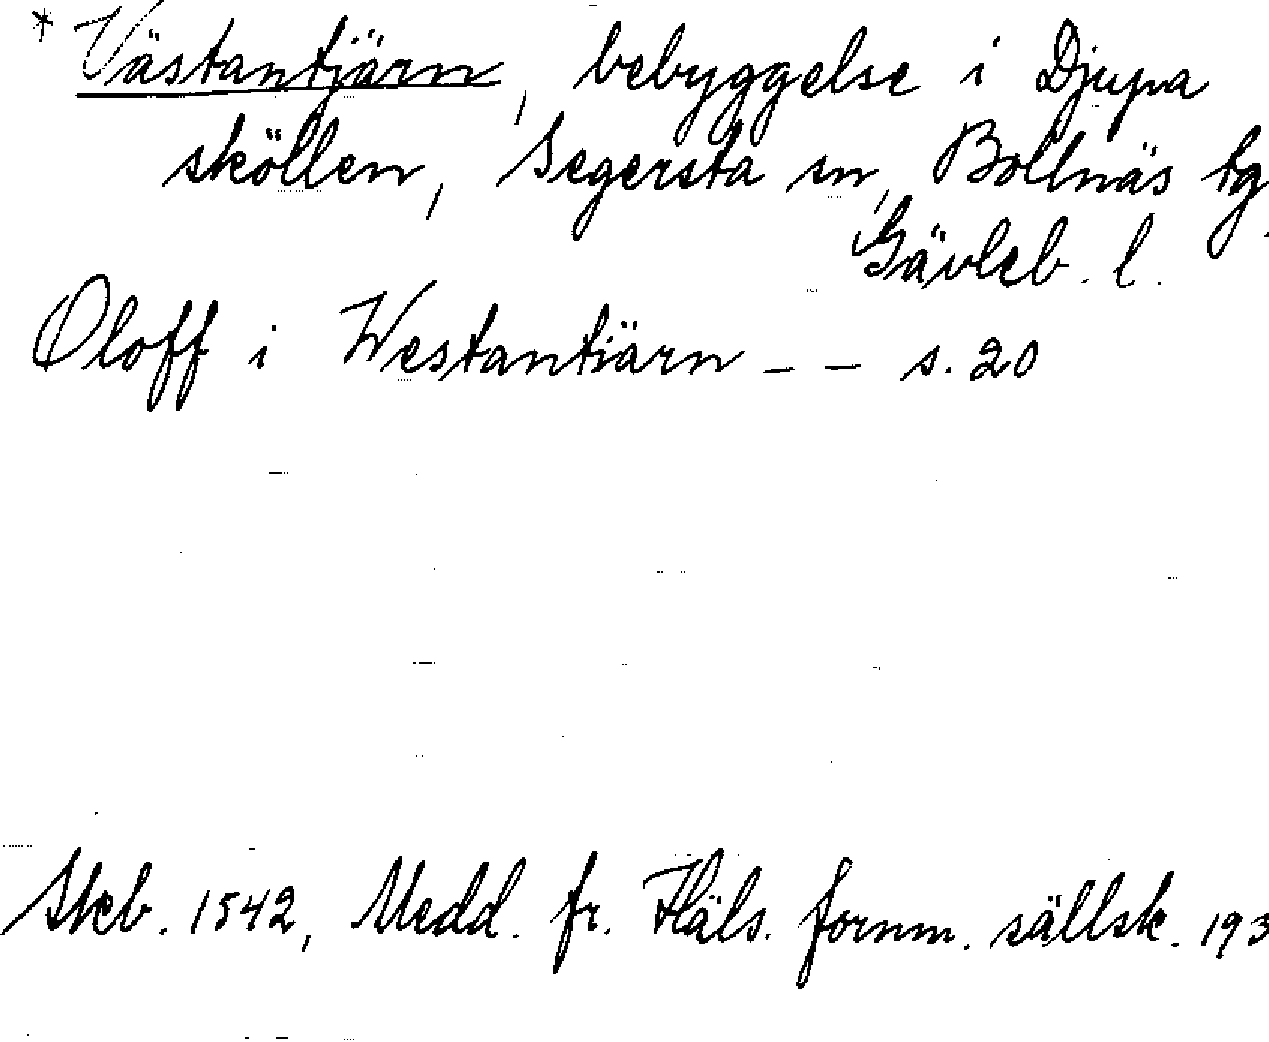 * Västantjärn, bebyggelse i Djupa
sköllen, Segersta sn, Bollnäs tg.
Gävleb. l.
Oloff i Westantiärn – – s. 20
Skb. 1542, Medd. fr. Häls. fornm. sällsk. 193